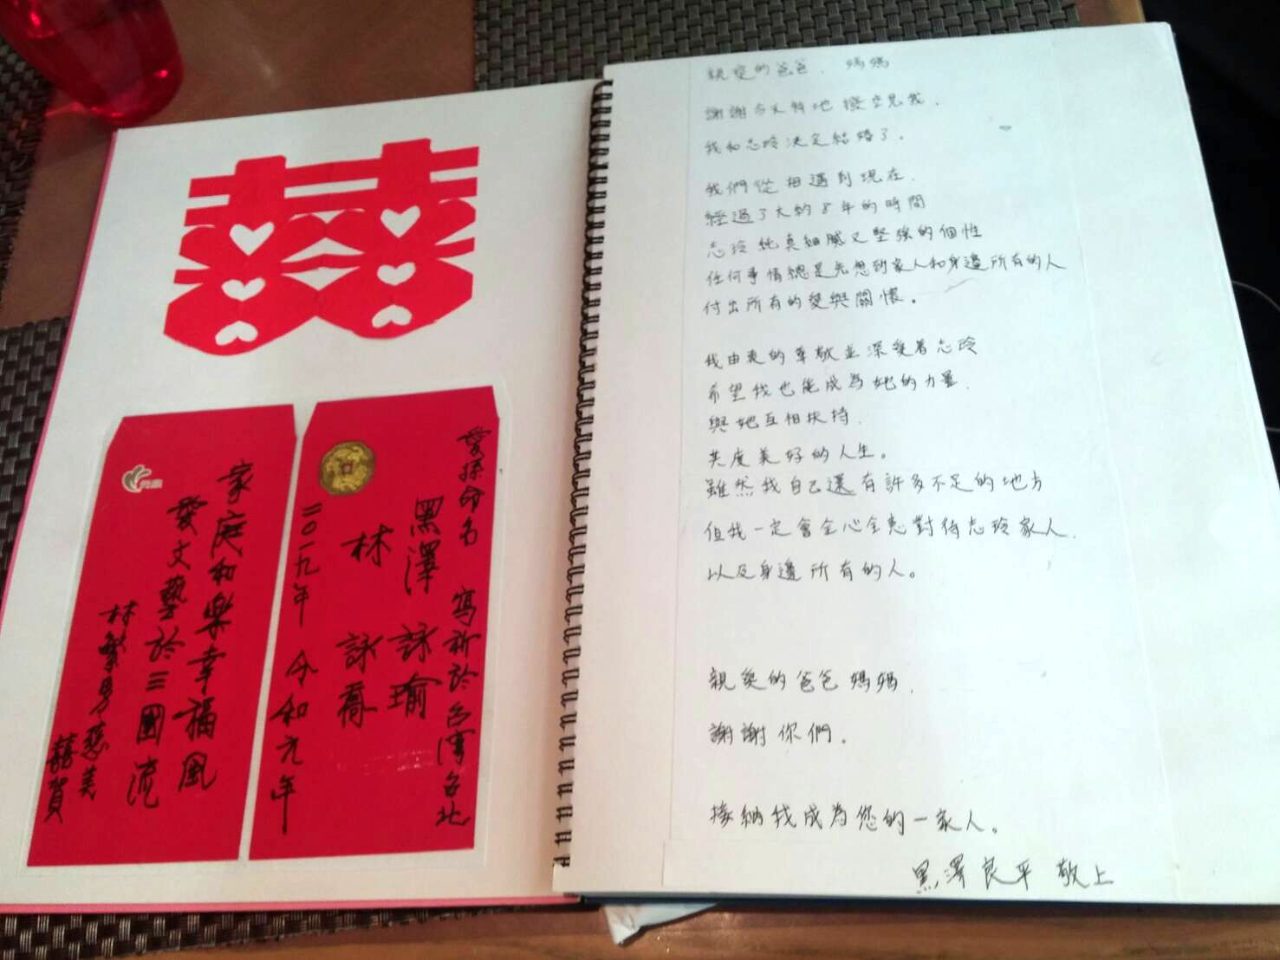 囍
愛孫命名 寫祈於台灣台北
黑澤 詠瑜
林 詠喬
二〇一九年 令和元年
家庭和樂幸福風
愛文藝於三國流
林繁男 慈美
囍賀
親愛的爸爸、媽媽
謝謝今天特地撥空見我.
我和志玲決定結婚了。
我們從相遇到現在.
經過了大約8年的時間
志玲純真細膩又堅強的個性
任何事情總是先想到家人和身邊所有的人
付出所有的愛與關懷。
我由衷的尊敬並深愛著志玲
希望我也能成為她的力量.
與她互相扶持.
共度美好的人生。
雖然我自己還有許多不足的地方
但我一定會全心全意對待志玲家人.
以及身邊所有的人。
親愛的爸爸媽媽.
謝謝你們.
接納我成為您的一家人。
黑澤良平 敬上